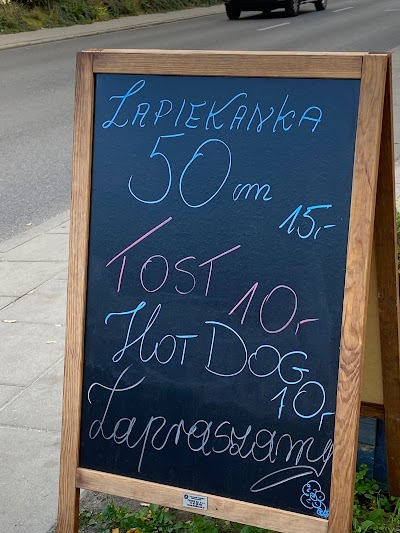 ZAPIEKANKA
50 cm
15,-
TOST 10,-
HOT DOG
10,-
Zapraszamy